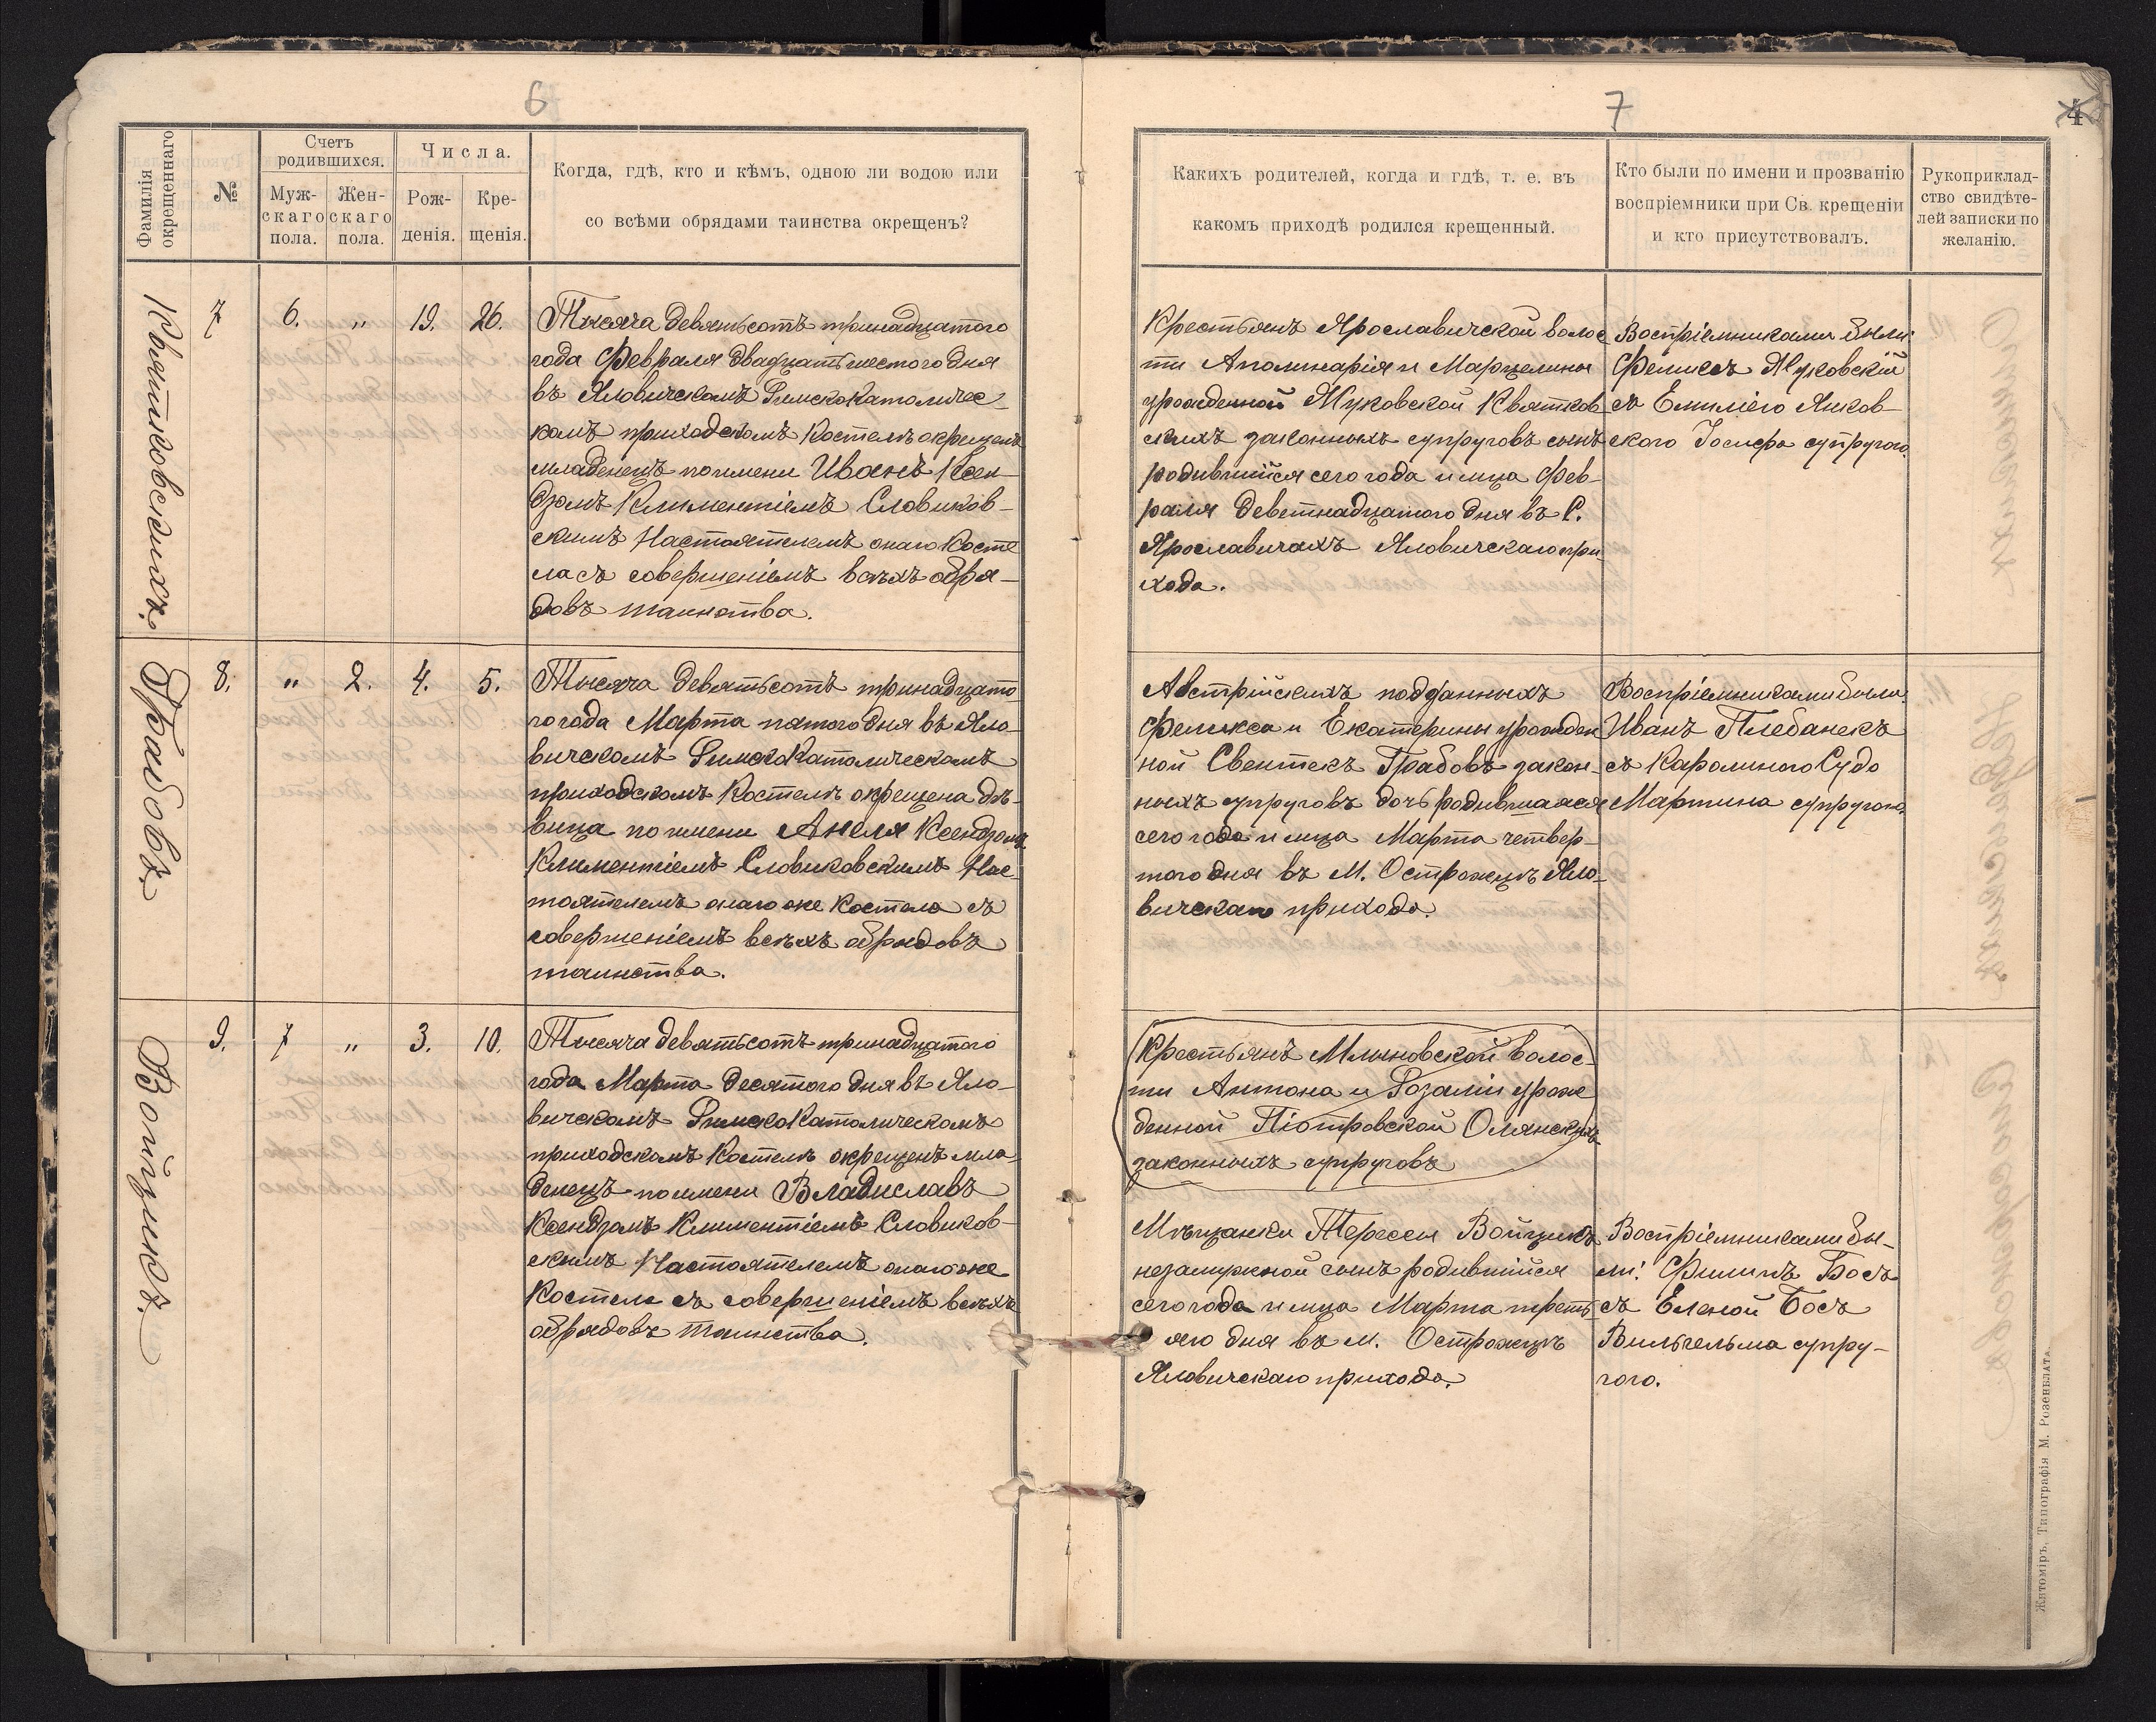 6
Фамилія
окрещеннаго
№
Счетъ
родившихся.
Муж-
скаго
пола.
Жен-
скаго
пола.
Числа.
Рож-
денія.
Кре-
щенія.
Когда, гдѣ, кто и кѣмъ, одною ли водою или
со всѣми обрядами таинства окрещенъ?
Квятковскихъ.
7
6.
„
19.
26.
Тысяча девятьсотъ тринадцатого
года Февраля двадцатьшестого дня
въ Яловичскомъ РимскоКатоличес-
комъ приходскомъ Костелѣ окрещенъ
младенецъ по имени Иванъ Ксен-
дзомъ Климентіемъ Словиков-
скимъ Настоятелемъ онаго Косте
ла съ совершеніемъ всѣхъ обря-
довъ таинства.
Грабовъ.
8.
„
2.
4.
5.
Тысяча девятьсотъ тринадцато
го года Марта пятого дня въ Яло-
вичскомъ РимскоКатолическомъ
приходскомъ Костелѣ окрещена дѣ-
вица по имени Анеля Ксендзомъ
Климентіемъ Словиковскимъ Нас-
тоятелемъ онаго же Костела съ
совершеніемъ всѣхъ обрядовъ
таинства.
Войцикъ.
9.
7
„
3.
10.
Тысяча девятьсотъ тринадцатого
года Марта десятого дня въ Яло-
вичскомъ РимскоКатолическомъ
приходскомъ Костелѣ окрещенъ мла-
денецъ по имени Владиславъ
Ксендзомъ Климентіемъ Словиков-
скимъ Настоятелемъ онаго же
Костела съ совершеніемъ всѣхъ
обрядовъ таинства.
7
4
Какихъ родителей, когда и гдѣ, т. е. въ
какомъ приходѣ родился крещенный.
Кто были по имени и прозванію
воспріемники при Св. крещеніи
и кто присутствовалъ.
Рукоприклад-
ство свидѣте-
лей записки по
желанію.
Крестьянъ Ярославичской волос
ти Аполинарія и Марцелины
урожденной Жуковской Квятков-
скихъ законныхъ супруговъ сынъ
родившійся сего года и мца Фев-
раля деветнадцатого дня въ С.
Ярославичахъ Яловичскаго при-
хода.
Воспріемниками были:
Феликсъ Жуковскій
съ Емиліею Янков-
ского Іосифа супругою.
Австрійскихъ подданныхъ
Феликса и Екатерины урожден
ной Свентекъ Грабовъ закон-
ныхъ супруговъ дочь родившаяся
сего года и мца Марта четвер-
того дня въ М. Острожцѣ Яло-
вичскаго прихода.
Воспріемниками были:
Иванъ Плебанекъ
съ Каролиного Судо
Мартина супругою.
Крестьянъ Млыновской волос-
ти Антона и Розаліи урож
денной Піотровской Олянскихъ
законныхъ супруговъ
Мѣщанки Терессы Войцикъ
незамужной сынъ родившійся
сего года и мца Марта треть-
яго дня въ м. Острожцѣ
Яловичскаго прихода.
Воспріемниками бы-
ли: Филипъ Босъ
съ Еленой Босъ
Вильгельма супру-
гого.
Житоміръ, Типографія М. Розенблата.